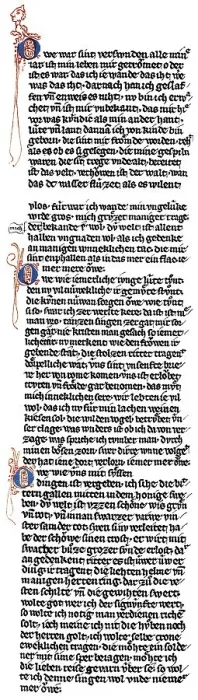 O we war sint verswunden alle minú
iar ist mir min leben getrömet oder
ist es war das ich ie wande das iht we
was das iht dar nach han ich geslaf
fen vñ enweis es niht nu bin ich erwa
chet vñ ist mir unbekant das mir hie
vor was kúndic als min ander hant
lúte vñ lant danna ich von kinde bin
geborn die sint mir frömde worden reht
als es ob es si gelogen die mine gespiln
waren die sint trege vnde alt bereitet
ist das velt verhöwen ist der walt wan
das dc wasser flússet als es wilent
vlos fúr war ich wande min vngelúke
wurde gros mich grússet maniger trage
der bekande e wol dú welt ist allent
halben vngnaden vol als ich gedenke
an manigen wunneklichen tac die mir
sint enphallen als in das mer ein slac ie
mer mere owe
O we wie iemerliche iunge lúte tunt
den nu vil núweklliche ir gemúte stunt
die kunnen núwan sorgen owe wie tunt si
so swar ich zer werlte kere da ist nie
man vro tanzen singen zergat mit sor
gen gar nie kristen man gesach so iemer
lichú iar nu merkent wie den frowen ir
gebende stat die stolzen ritter tragent
dörpelliche wat vns sint vnsenfte brie
ve her von rome komen vns ist erlöbet
truren vñ fröide gar benomen das müt
mich inneklichen sere wir lebten ie vil
wol das ich nu fúr min lachen weinen
kiesen sol die wilden vogel betrúbet vn
ser clage was wunders ist ob ich da von ver
zage was spriche ich tumber man durch
minen bösen zorn swer dirre wunne volget
der hat iene dort verlorn iemer mer owe
O we wie vns mit sússen
dingen ist vergeben ich sihe die bit
tern gallen mitten in dem honige swe
ben dú welt ist vssen schöne wis grún
vñ rot vñ innan swarzer varwe vin
ster sam der tot swen si nv verleitet ha
be der schöwe sinen trost er wirt mit
swacher buosse grosser súnde erlost dar
an gedenkent ritter es ist úwer
ding ir tragent die liehten helme vñ
manigen herten ring dar zuo die ve
sten schilte vñ die gewihten swert
wolte got wer ich der signúnfte wert
so wolte ich notig man verdienen richen
solt ioch meine ich niht die huoben noch
der herren golt ich wolte selbe crone
eweklichen tragen die möhte ein solde
ner mit sime sper beiagen möhte ich
die lieben reise gevarn úber se so wol
te ich denne singen wol vnde niemer
mer owe